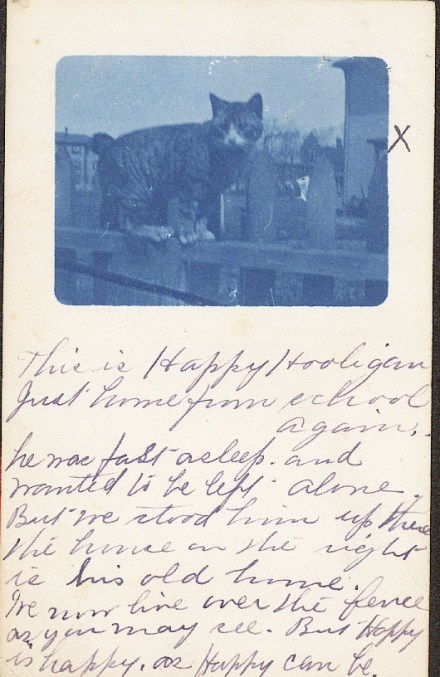 X
This is Happy Hooligan
Just home from school
again.
he was fast asleep. and
wanted to be left alone.
But we stood him up there
the house on the right
is his old home.
We now live over the fence
as you may see. But Happy
is happy. as Happy can be.